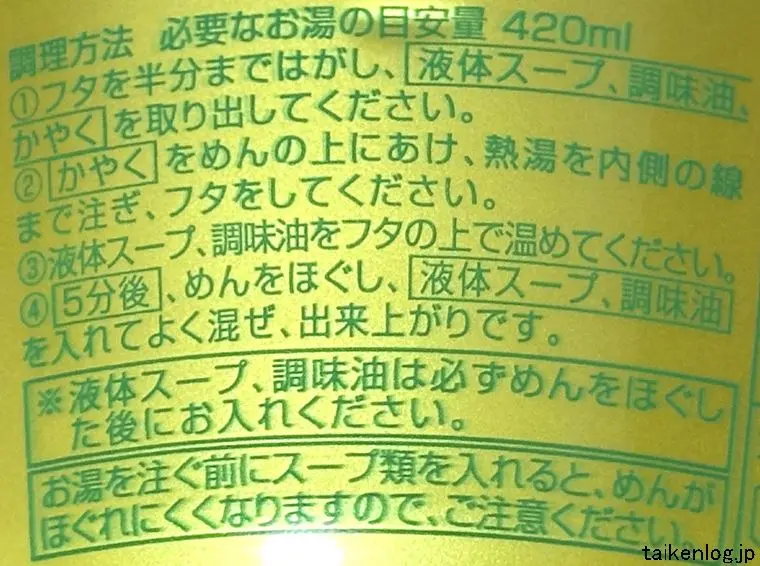 調理方法 必要なお湯の目安量 420ml
①フタを半分まではがし、液体スープ、調味油、
かやくを取り出してください。
②かやくをめんの上にあけ、熱湯を内側の線
まで注ぎ、フタをしてください。
③液体スープ、調味油をフタの上で温めてください。
④5分後、めんをほぐし、液体スープ、調味油
を入れてよく混ぜ、出来上がりです。
※液体スープ、調味油は必ずめんをほぐし
た後にお入れください。
お湯を注ぐ前にスープ類を入れると、めんが
ほぐれにくくなりますので、ご注意ください。
taikenlog.jp